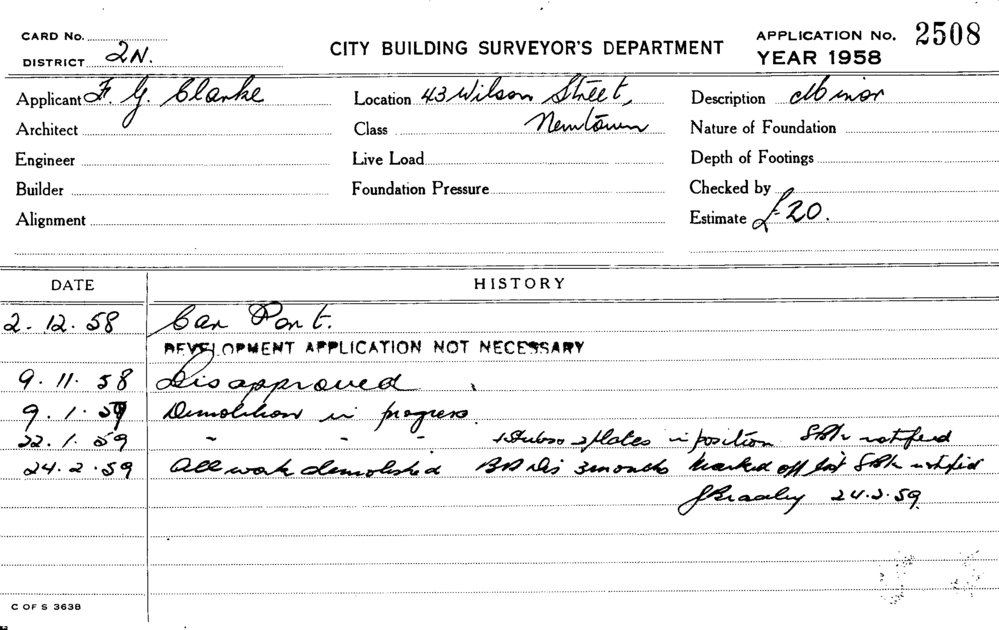 CARD No.
DISTRICT 2N.
CITY BUILDING SURVEYOR'S DEPARTMENT
APPLICATION No. 2508
YEAR 1958
Applicant F. G. Clarke
Location 43 Wilson Street,
Newtown
Description Minor
Architect
Class
Nature of Foundation
Engineer
Live Load
Depth of Footings
Builder
Foundation Pressure
Checked by
Alignment
Estimate £20.
DATE HISTORY
2. 12. 58 Car Port.
DEVELOPMENT APPLICATION NOT NECESSARY
9. 11. 58 Disapproved
9. 1. 59 Demolition in progress
22. 1. 59 " " " plates in position notified
24. 2. 59 All work demolished 3 months Marked off list notified
24.2.59
C OF S 363B